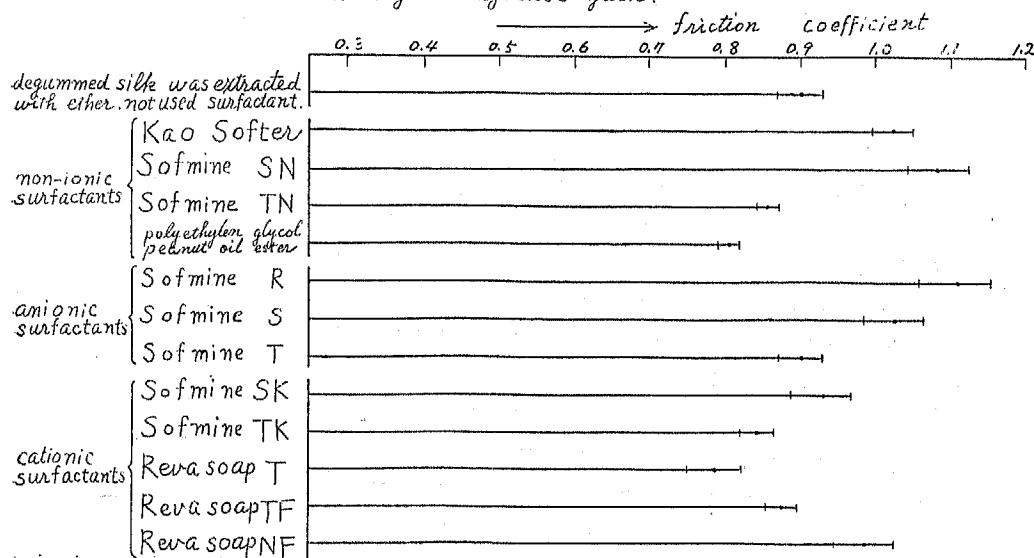 friction coefficient
0.3 0.4 0.5 0.6 0.7 0.8 0.9 1.0 1.1 1.2
degummed silk was extracted
with ether. not used surfactant.
non-ionic
surfactants
Kao Softer
Sofmine SN
Sofmine TN
polyethylen glycol
peanut oil ester
anionic
surfactants
Sofmine R
Sofmine S
Sofmine T
cationic
surfactants
Sofmine SK
Sofmine TK
Reva soap T
Reva soap TF
Reva soap NF